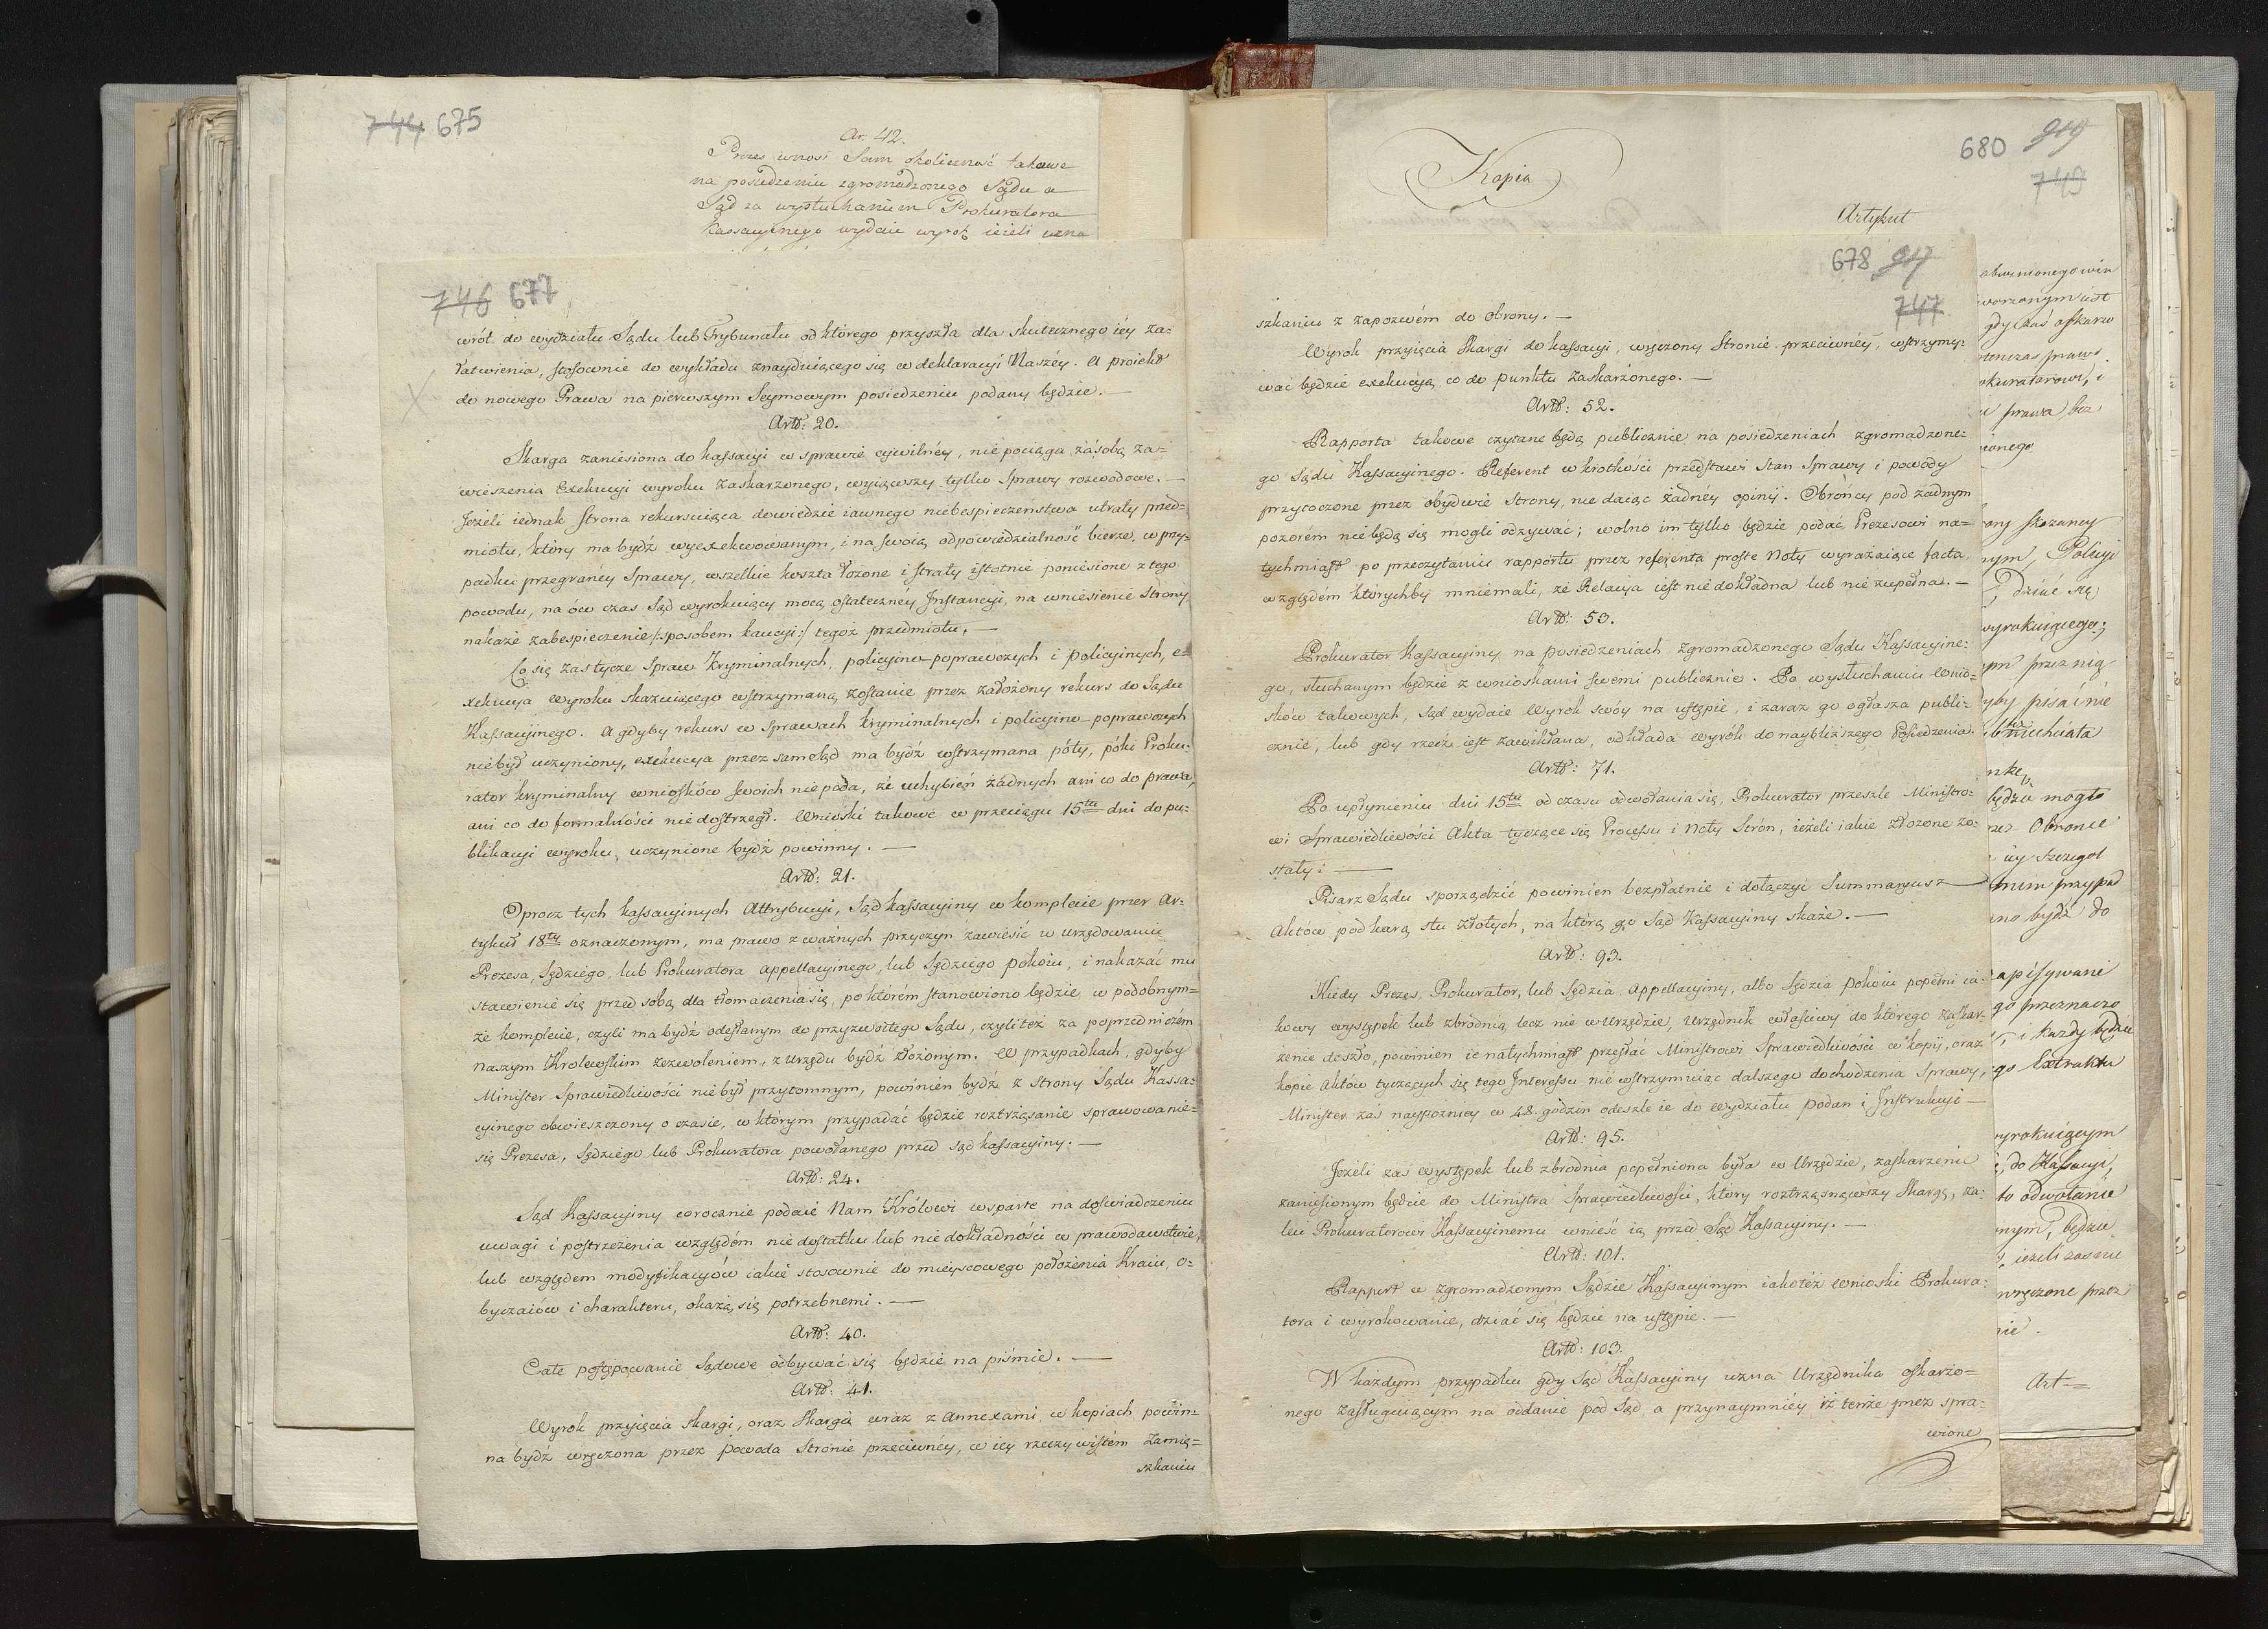 744 675
Ar 42.
Prezes wnosi Sam okoliczność takowe
na posiedzeniu zgromadzonego Sądu a
Sąd za wysłuchaniem Prokuratora
kassacyinego wydaie wyrok ieżeli uzna
746 677
wrót do wydziału Sądu lub Trybunału od którego przyszła dla skutecznego iéy za-
łatwienia, stosownie do wykładu znayduiącego się w deklaracyi Naszéy. A proiekt
do nowego Prawa na pierwszym Seymowym posiedzeniu podany będzie. —
Artt: 20.
Skarga zaniesiona do kassacyi w sprawie cywilnéy, nie pociąga zasobą za-
wieszenia Exekucyi wyroku zaskarżonego, wyiąwszy tylko Sprawy rozwodowe. —
Jeżeli iednak strona rekursuiąca dowiedzie iawnego niebespieczeństwa utraty przed-
miotu, który ma bydź wyexekwowanym, i na swoią odpowiedzialność bierze, w przy-
padku przegranéy Sprawy, wszelkie koszta łożone i straty istotnie poniesione z tego
powodu, na ów czas Sąd wyrokuiący mocą ostatecznéy Jnstancyi, na wniesienie Strony
nakaże zabespieczenie /: sposobem kaucyi :/ tegoż przedmiotu. —
Co się zastycze Spraw kryminalnych, policyino-poprawczych i policyinych, e-
xekucya wyroku skazuiącego wstrzymaną zostanie przez założony rekurs do Sądu
Kassacyinego. A gdyby rekurs w Sprawach kryminalnych i policyino-poprawczych
niebył uczyniony, exekucya przez sam Sąd ma bydź wstrzymana póty, póki Proku-
rator kryminalny wniosków swoich niepoda, że uchybień żadnych ani co do prawa,
ani co do formalności niedostrzegł. Wnioski takowe w przeciągu 15tu dni do pu-
blikacyi wyroku, uczynione bydź powinny. —
Artt: 21.
Oprocz tych kassacyinych Attrybucyi, Sąd kassacyiny w komplecie przez Ar-
tykuł 18ty oznaczonym, ma prawo z ważnych przyczyn zawiesić w urzędowaniu
Prezesa, Sędziego, lub Prokuratora appellacyinego, lub Sędziego pokoiu, i nakazać mu
stawienie się przed sobą dla tłomaczenia się, po którém stanowiono będzie w podobnym-
że komplecie, czyli ma bydź odesłanym do przyzwoitego Sądu, czyli też za poprzedniczém
naszym Krolewskim zezwoleniem, z urzędu bydź złożonym. W przypadkach, gdyby
Minister Sprawiedliwości niebył przytomnym, powinien bydź z strony Sądu Kassa-
cyinego obwieszczony o czasie, w którym przypadać będzie roztrząsanie sprawowanie-
się Prezesa, Sędziego lub Prokuratora powołanego przed sąd kassacyiny. —
Artt: 24.
Sąd Kassacyiny corocznie podaie Nam Królowi wsparte na doświadczeniu
uwagi i postrzeżenia względém niedostatku lub niedokładności w prawodawctwie,
lub względem modyfikacyów iakie stosownie do mieyscowego położenia Kraiu, o-
byczaiów i charakteru, okażą się potrzebnemi. —
Artt: 40.
Całe postępowanie Sądowe odbywać się będzie na piśmie. —
Artt: 41.
Wyrok przyięcia skargi, oraz Skarga wraz z Annexami w kopiach, powin-
na bydź wręczona przez Powoda Stronie przeciwnéy, w iéy rzeczywistém zamię-
szkaniu
Kopia
680 919
749
Artykuł
678 917
747
szkaniu z zapozwém do obrony. —
Wyrok przyięcia Skargi do kassacyi, wręczony Stronie przeciwnéy, wstrzymy-
wać będzie exekucyą co do punktu zaskarżonego. —
Artt: 52.
Rapporta takowe czytane będą publicznie na posiedzeniach zgromadzone-
go Sądu Kassacyinego. Referent w krótkości przedstawi Stan Sprawy i powody
przytoczone przez obydwie strony, nie daiąc żadnéy opinii. Obrońcy pod żadnym
pozorém niebędą się mogli odzywać; wolno im tylko będzie podać Prezesowi na-
tychmiast po przeczytaniu rapportu przez referenta proste Noty wyrażaiące facta
względém którychby mniemali, że Relacya iest niedokładna lub nie zupełna. —
Artt: 53.
Prokurator Kassacyiny na posiedzeniach Zgromadzonego Sądu Kassacyine-
go, słuchanym będzie z wnioskami swemi publicznie. Po wysłuchaniu wnio-
sków takowych, Sąd wydaie Wyrok swóy na ustępie, i zaraz go ogłasza publi-
cznie, lub gdy rzecz iest zawikłana, odkłada wyrók do naybliższego Posiedzenia.
Artt: 71.
Po upłynieniu dni 15tu od czasu odwołania się, Prokurator przeszle Ministro-
wi Sprawiedliwości Akta tyczące się Processu i Noty Strón, ieżeli iakie złożone zo-
stały i —
Pisarz Sądu sporządzić powinien bezpłatnie i dołączyć Summaryusz
Aktów pod karą stu złotych, na którą go Sąd Kassacyiny skaże. —
Artt: 93.
Kiedy Prezes, Prokurator, lub Sędzia Appellacyiny, albo Sędzia pokoiu popełni ia-
kowy występek lub zbrodnią lecz nie w Urzędzie, Urzędnik właściwy do którego zaskar-
żenie doszło, powinien ie natychmiast przesłać Ministrowi Sprawiedliwości w kopii, oraz
kopie Aktów tyczących się tego Jnteressu nie wstrzymuiąc dalszego dochodzenia Sprawy,
Minister zaś naypóźniey w 48. godzin odeszle ie do wydziału podań i Jnstrukcyi —
Artt: 95.
Jeżeli zas występek lub zbrodnia popełniona była w Urzędzie, zaskarzenie
zaniesionym będzie do Ministra Sprawiedliwości, który roztrząsnąwszy Skargę, za-
leci Prokuratorowi Kassacyinemu wnieść ią przed Sąd Kassacyiny. —
Artt: 101.
Rapport w zgromadzonym Sądzie Kassacyinym iakoteż wnioski Prokura-
tora i wyrokowanie, dziać się będzie na ustępie. —
Artt: 103.
W każdym przypadku gdy Sąd Kassacyiny uzna Urzędnika oskarżo-
nego zasługuiącym na oddanie pod Sąd, a przynaymniéy iż tenże przez spra-
wione
gdy zaś oskarżo
prawa bez
Policyi
dziać się
wyrokuiącego;
przez nią
będzie mogło
Obronie
iéy szczegol
przypad
bydź do
i każdy będzie
Extraktu
wyrokuiącym
do Kassacyi,
to odwołanie
będzie
wręczone przez
Art=